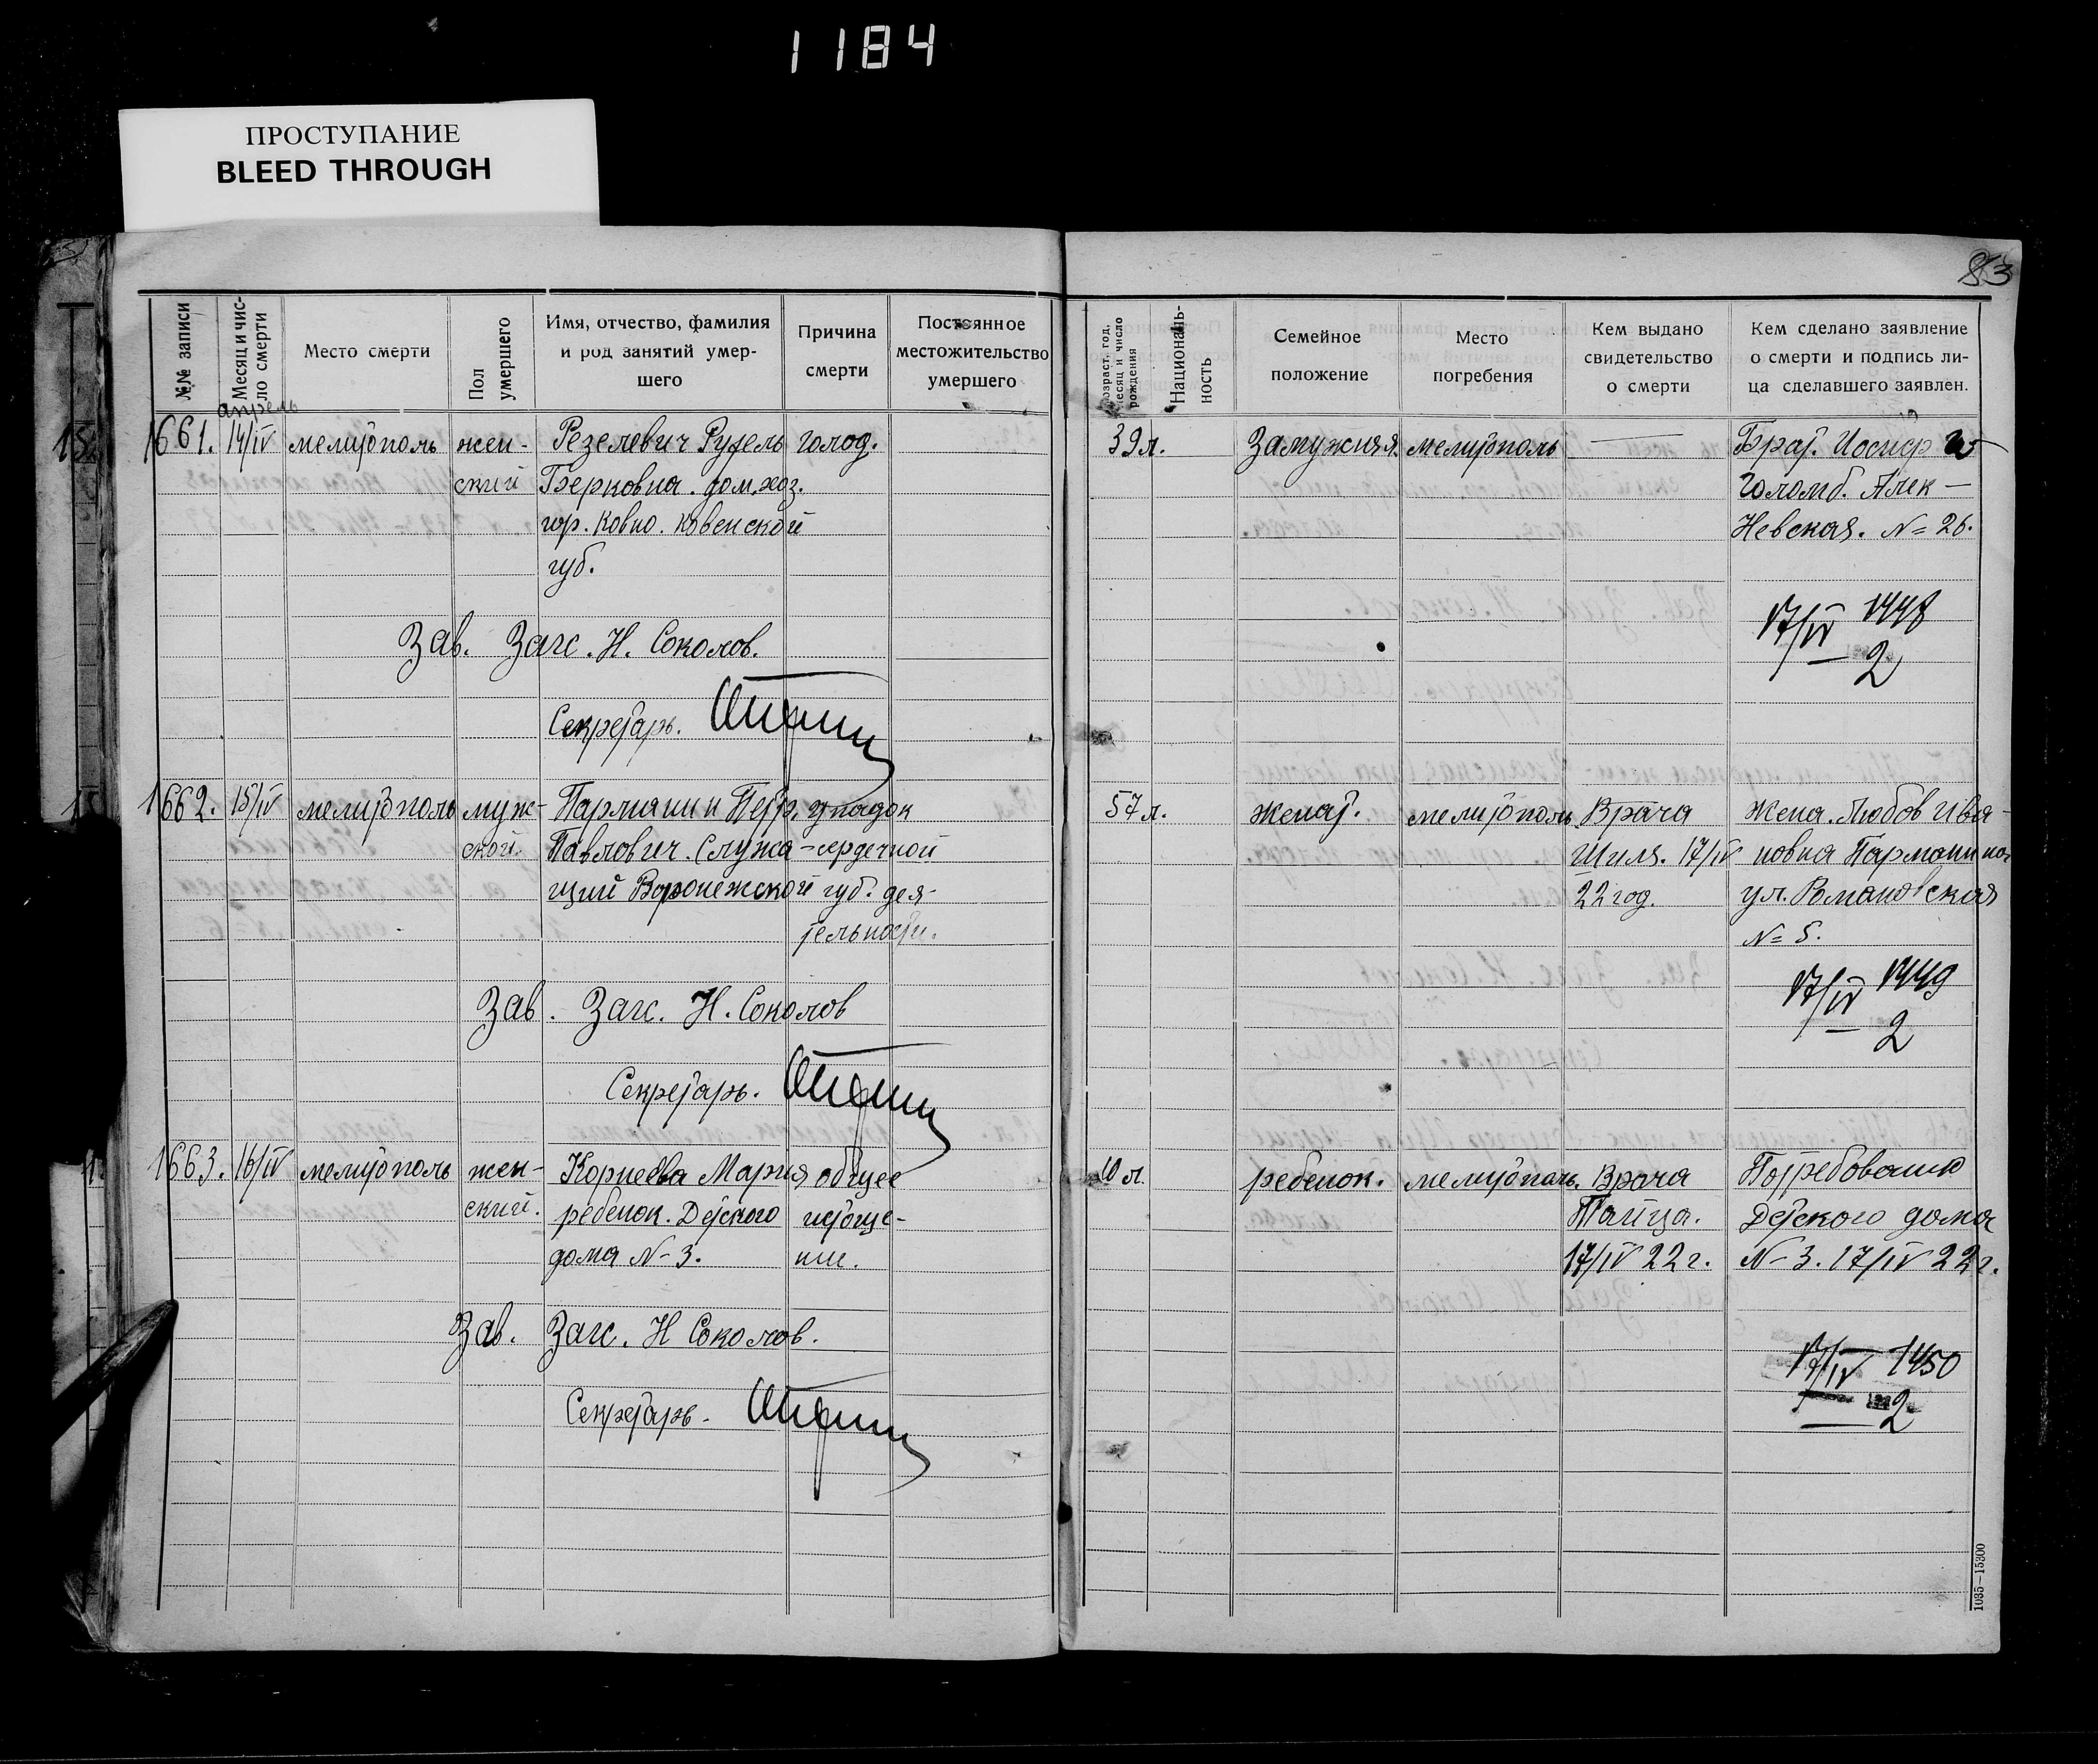 1184
ПРОСТУПАНИЕ
BLEED THROUGH
83
№№ записи
Месяц и чис-
ло смерти
Место смерти
Пол
умершего
Имя, отчество, фамилия
и род занятий умер-
шего
Причина
смерти
Постоянное
местожительство
умершего
Возраст, год,
месяц и число
рождения
Националь-
ность
Семейное
положение
Место
погребения
Кем выдано
свидетельство
о смерти
Кем сделано заявление
о смерти и подпись ли-
ца сделавшего заявлен.
апрель
1661. 14/IV мелитополь жен- Резелевич голод. 39 л. Замужняя. мелитополь — Брат. Иосиф
ский Берковна. дом. хоз. Голомб. Алек-
гор. Ковно. Ковенской Невская. N= 26.
губ.
Зав. Загс. Н. Соколов. 17/IV 1448
2
Секретарь.
1662. 15/IV мелитополь муж- Парманин Петр. упадок 57 л. женат. мелитополь. Врача жена. Любов Ива-
ской. Павлович. Служа- сердечной Шиля. 17/IV новна Парманина
щий Воронежской губ. дея- 22 год. ул. Романовская
тельности. N= 5.
Зав. Загс. Н. Соколов 17/IV 1449
2
Секретарь.
1663. 16/IV мелитополь жен- Корнеева Мария общее 10 л. ребенок. мелитополь. Врача Потребованию
ский. ребенок. Детского истоще- Тайца. Детского дома
дома N- 3. ние. 17/IV 22 г. N- 3. 17/IV 22 г.
Зав. Загс. Н Соколов. 17/IV 1450
2
Секретарь-
1035—15300